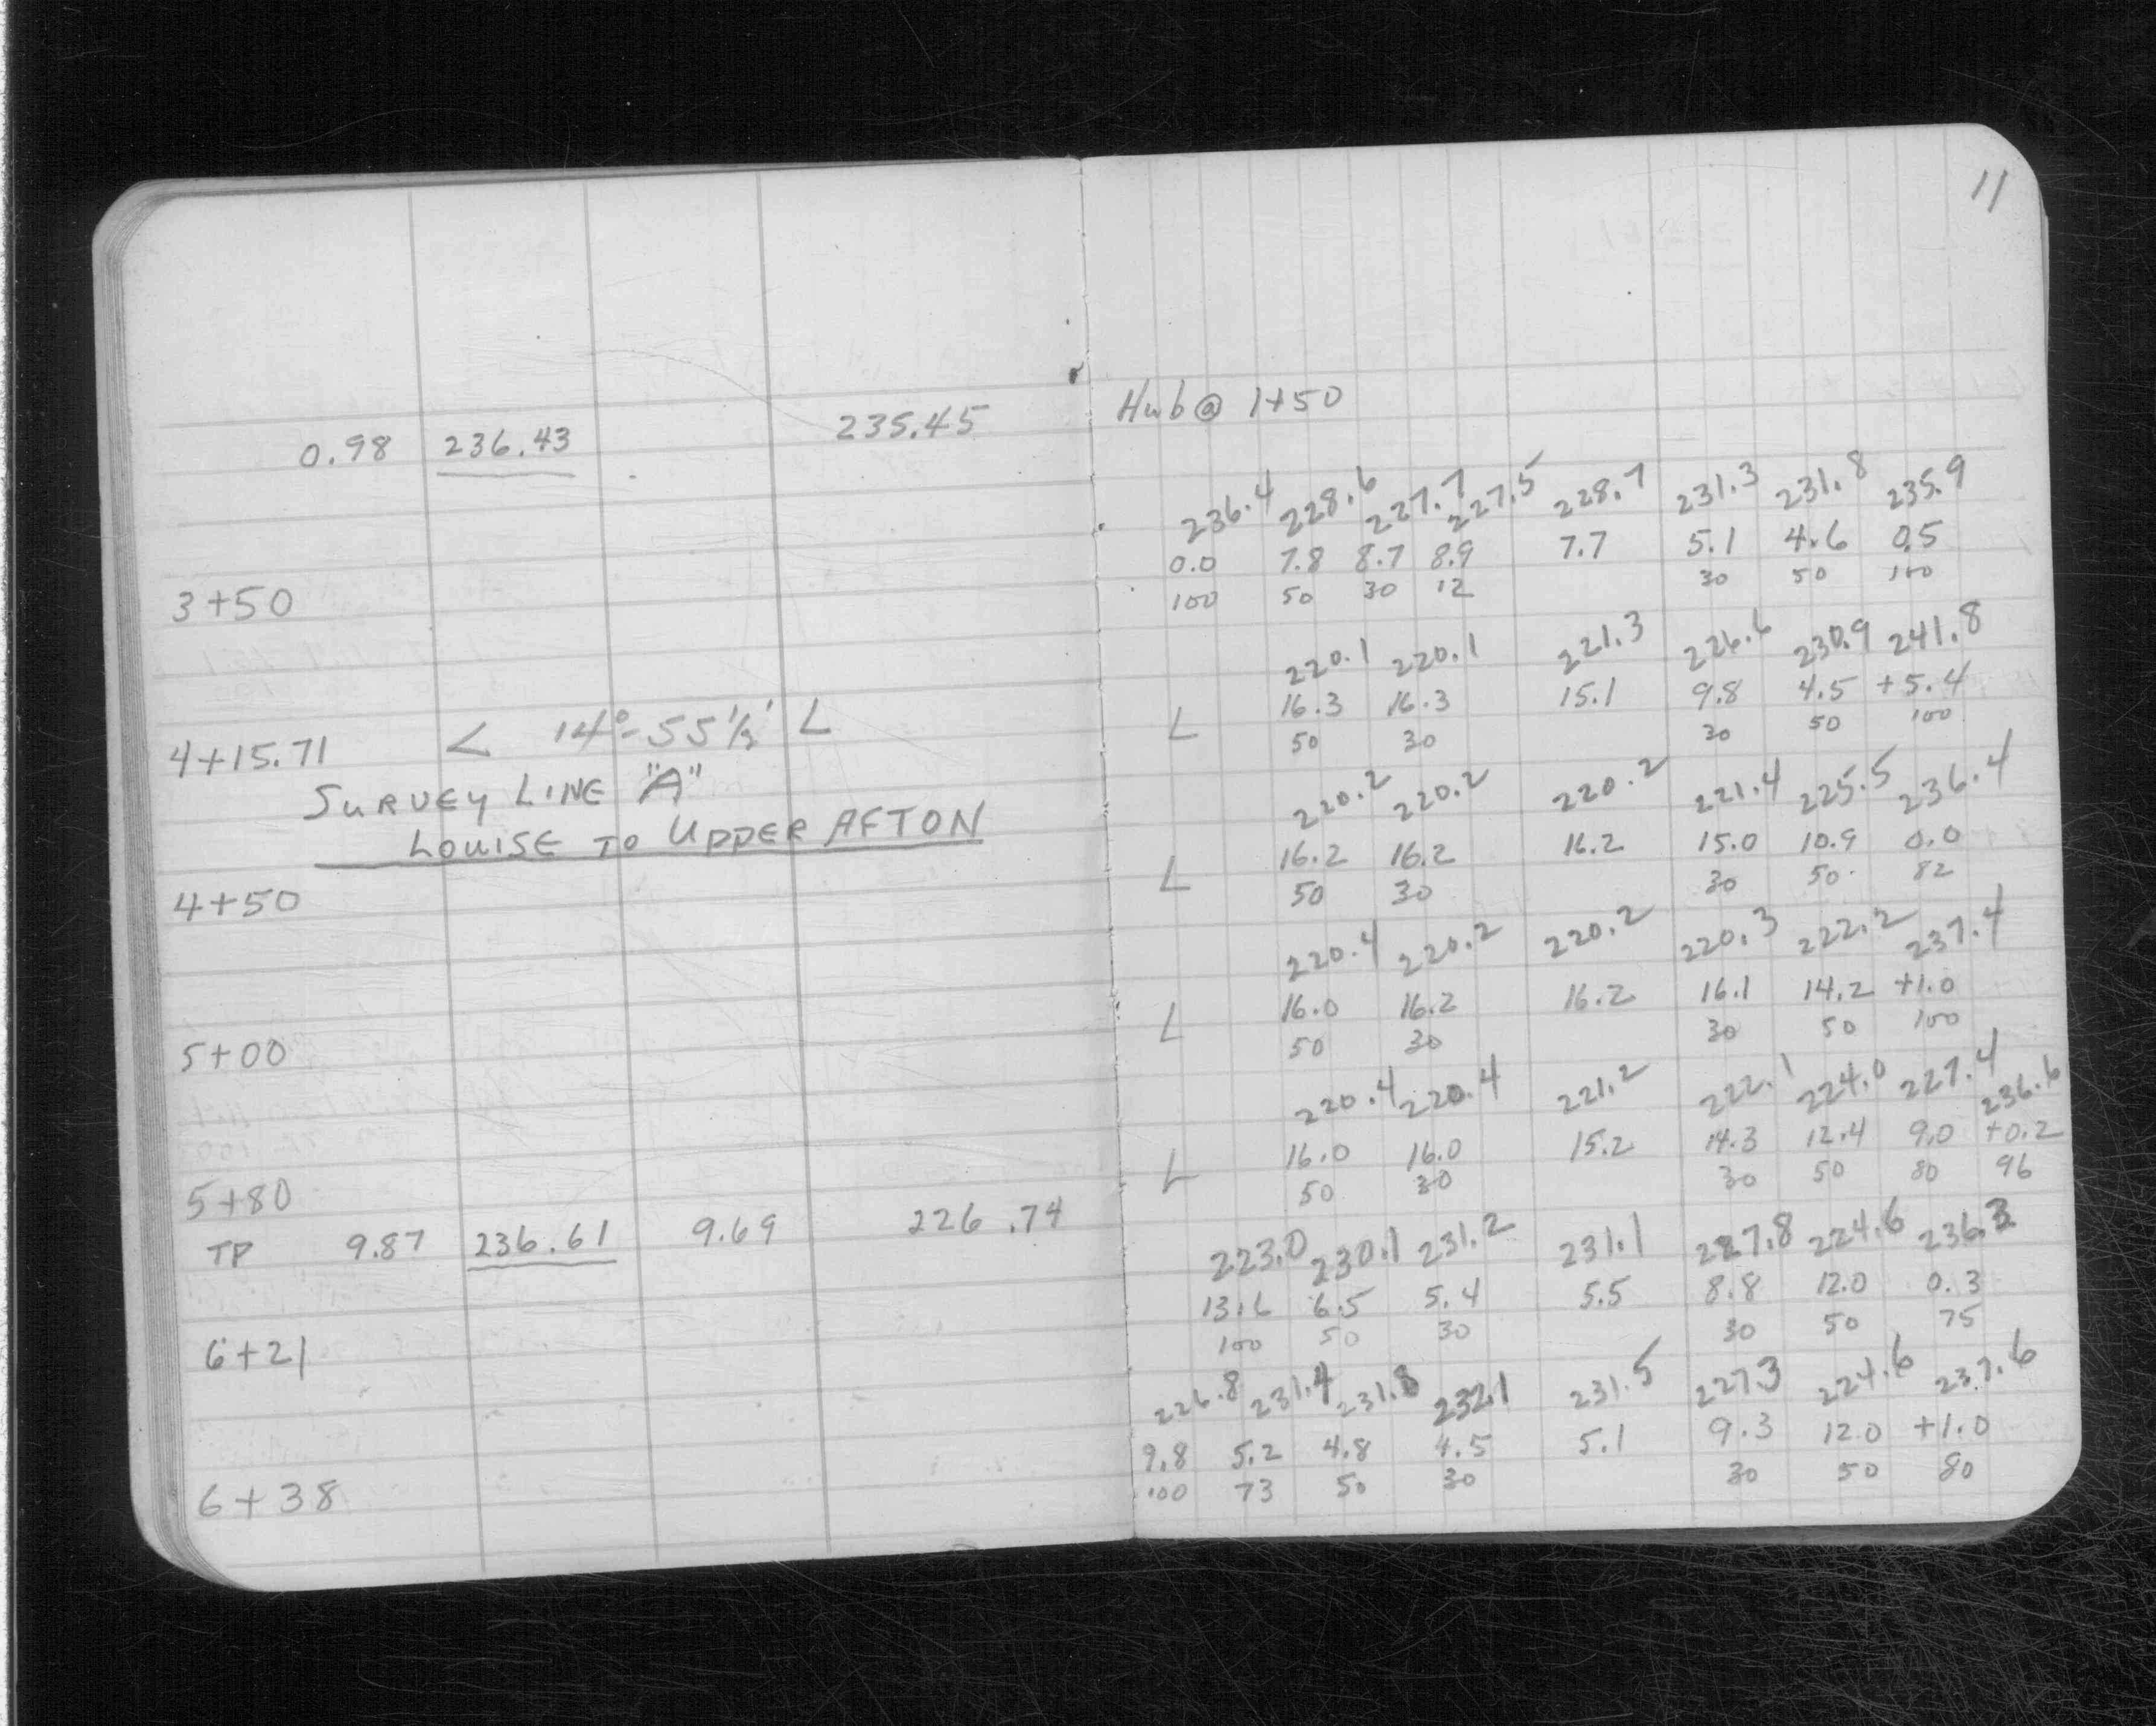 11
0.98 236.43 235.45 Hub @ 1+50
236.4 228.6 227.7 227.5 228.7 231.3 231.8 235.9
0.0 7.8 8.7 8.9 7.7 5.1 4.6 0.5
3+50 100 50 30 12 30 50 100
220.1 220.1 221.3 226.6 230.9 241.8
16.3 16.3 15.1 9.8 4.5 +5.4
4+15.71 < 14°-55½' L L 50 30 30 50 100
SURVEY LINE "A"
LOUISE TO UPPER AFTON
220.2 220.2 220.2 221.4 225.5 236.4
16.2 16.2 16.2 15.0 10.9 0.0
4+50 L 50 30 30 50 82
220.4 220.2 220.2 220.3 222.2 237.4
16.0 16.2 16.2 16.1 14.2 +1.0
5+00 L 50 30 30 50 100
220.4 220.4 221.2 222.1 224.0 227.4 236.6
16.0 16.0 15.2 14.3 12.4 9.0 +0.2
5+80 L 50 30 30 50 80 96
TP 9.87 236.61 9.69 226.74
223.0 230.1 231.2 231.1 227.8 224.6 236.3
13.6 6.5 5.4 5.5 8.8 12.0 0.3
6+21 100 50 30 30 50 75
226.8 231.4 231.8 232.1 231.5 227.3 224.6 237.6
9.8 5.2 4.8 4.5 5.1 9.3 12.0 +1.0
6+38 100 73 50 30 30 50 80